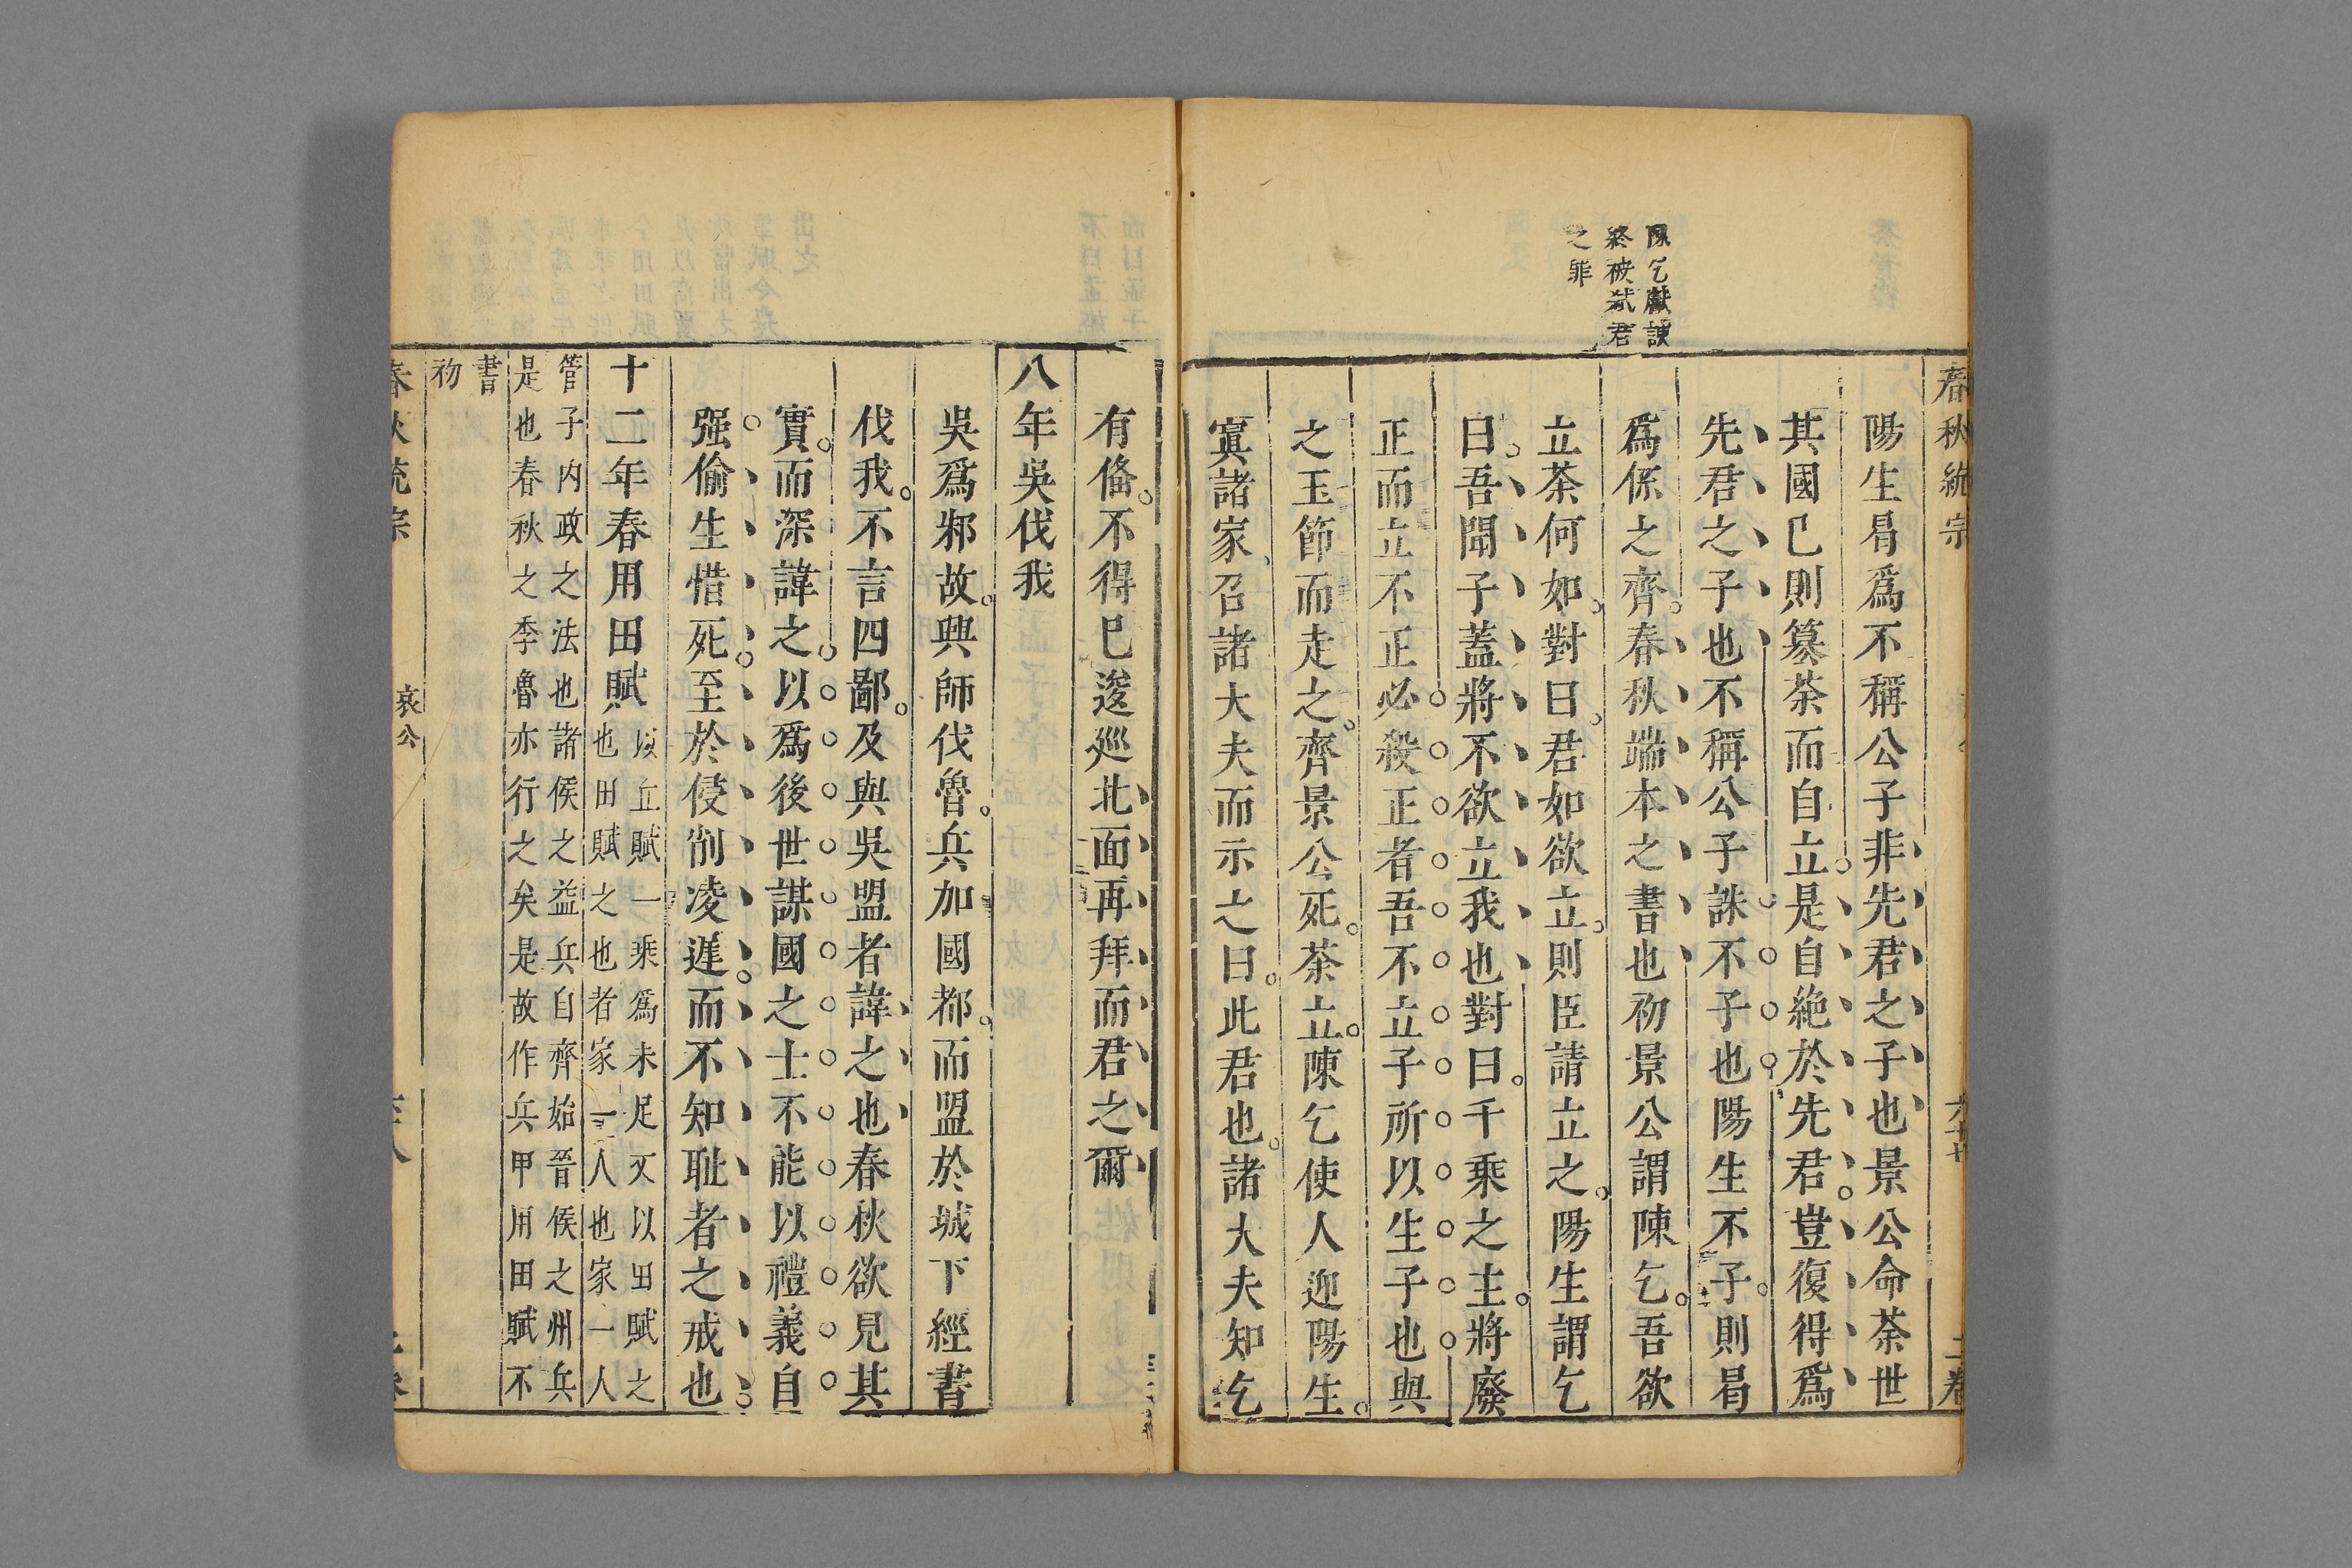 春秋統宗
陳乞獻諛
終被弒君
之罪
陽生曷爲不稱公子非先君之子也景公命荼世
其國已則簒荼而自立是自絶於先君豈復得爲
先君之子也不稱公子誅不子也陽生不子則曷
爲係之齊春秋端本之書也初景公謂陳乞吾欲
立荼何如對曰君如欲立則臣請立之陽生謂乞
曰吾聞子蓋將不欲立我也對曰千乘之主將廢
正而立不正必殺正者吾不立子所以生子也與
之玉節而走之齊景公死荼立陳乞使人迎陽生
寘諸家召諸大夫而示之曰此君也諸大夫知乞
有俻不得已逡巡北面再拜而君之爾
八年吳伐我
吳爲邾故興師伐魯兵加國都而盟於城下經書
伐我不言四鄙及與吳盟者諱之也春秋欲見其
實而深諱之以爲後世謀國之士不能以禮義自
强偷生惜死至於侵削凌遅而不知耻者之戒也
十二年春用田賦
以丘賦一乘爲未足又以田賦之
也田賦之也者家一人也家一人
管子内政之法也諸侯之益兵自齊始晉侯之州兵
是也春秋之季魯亦行之矣是故作兵甲用田賦不
書
初
春秋統宗
哀公